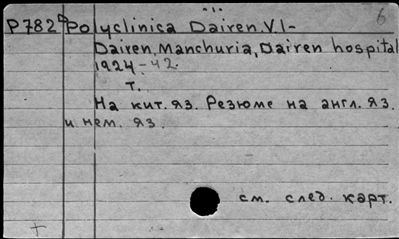 6
P782 Polyclinica Dairen. V.1-
Dairen, Manchuria, Dairen hospital
1924-42.
т.
На кит. яз. Резюме на англ. яз.
и нем. яз.
см. след. карт.